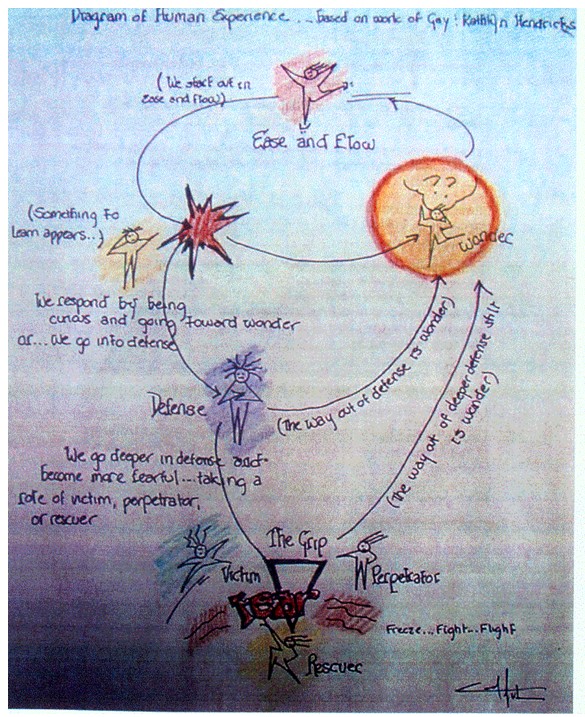 Diagram of Human Experience ... based on work of Gay & Kathlyn Hendricks
(We start out in
Ease and Flow)
Ease and Flow
(Something to
Learn appears..)
? ?
Wonder
We respond by being
curious and going toward wonder
or... We go into defense
Defense
(The way out of defense is wonder)
(The way out of deeper defense still
is wonder)
We go deeper in defense and
become more fearful... taking a
role of victim, perpetrator,
or rescuer
The Grip
Victim
Perpetrator
Fear
Freeze... Fight... Flight
Rescuer